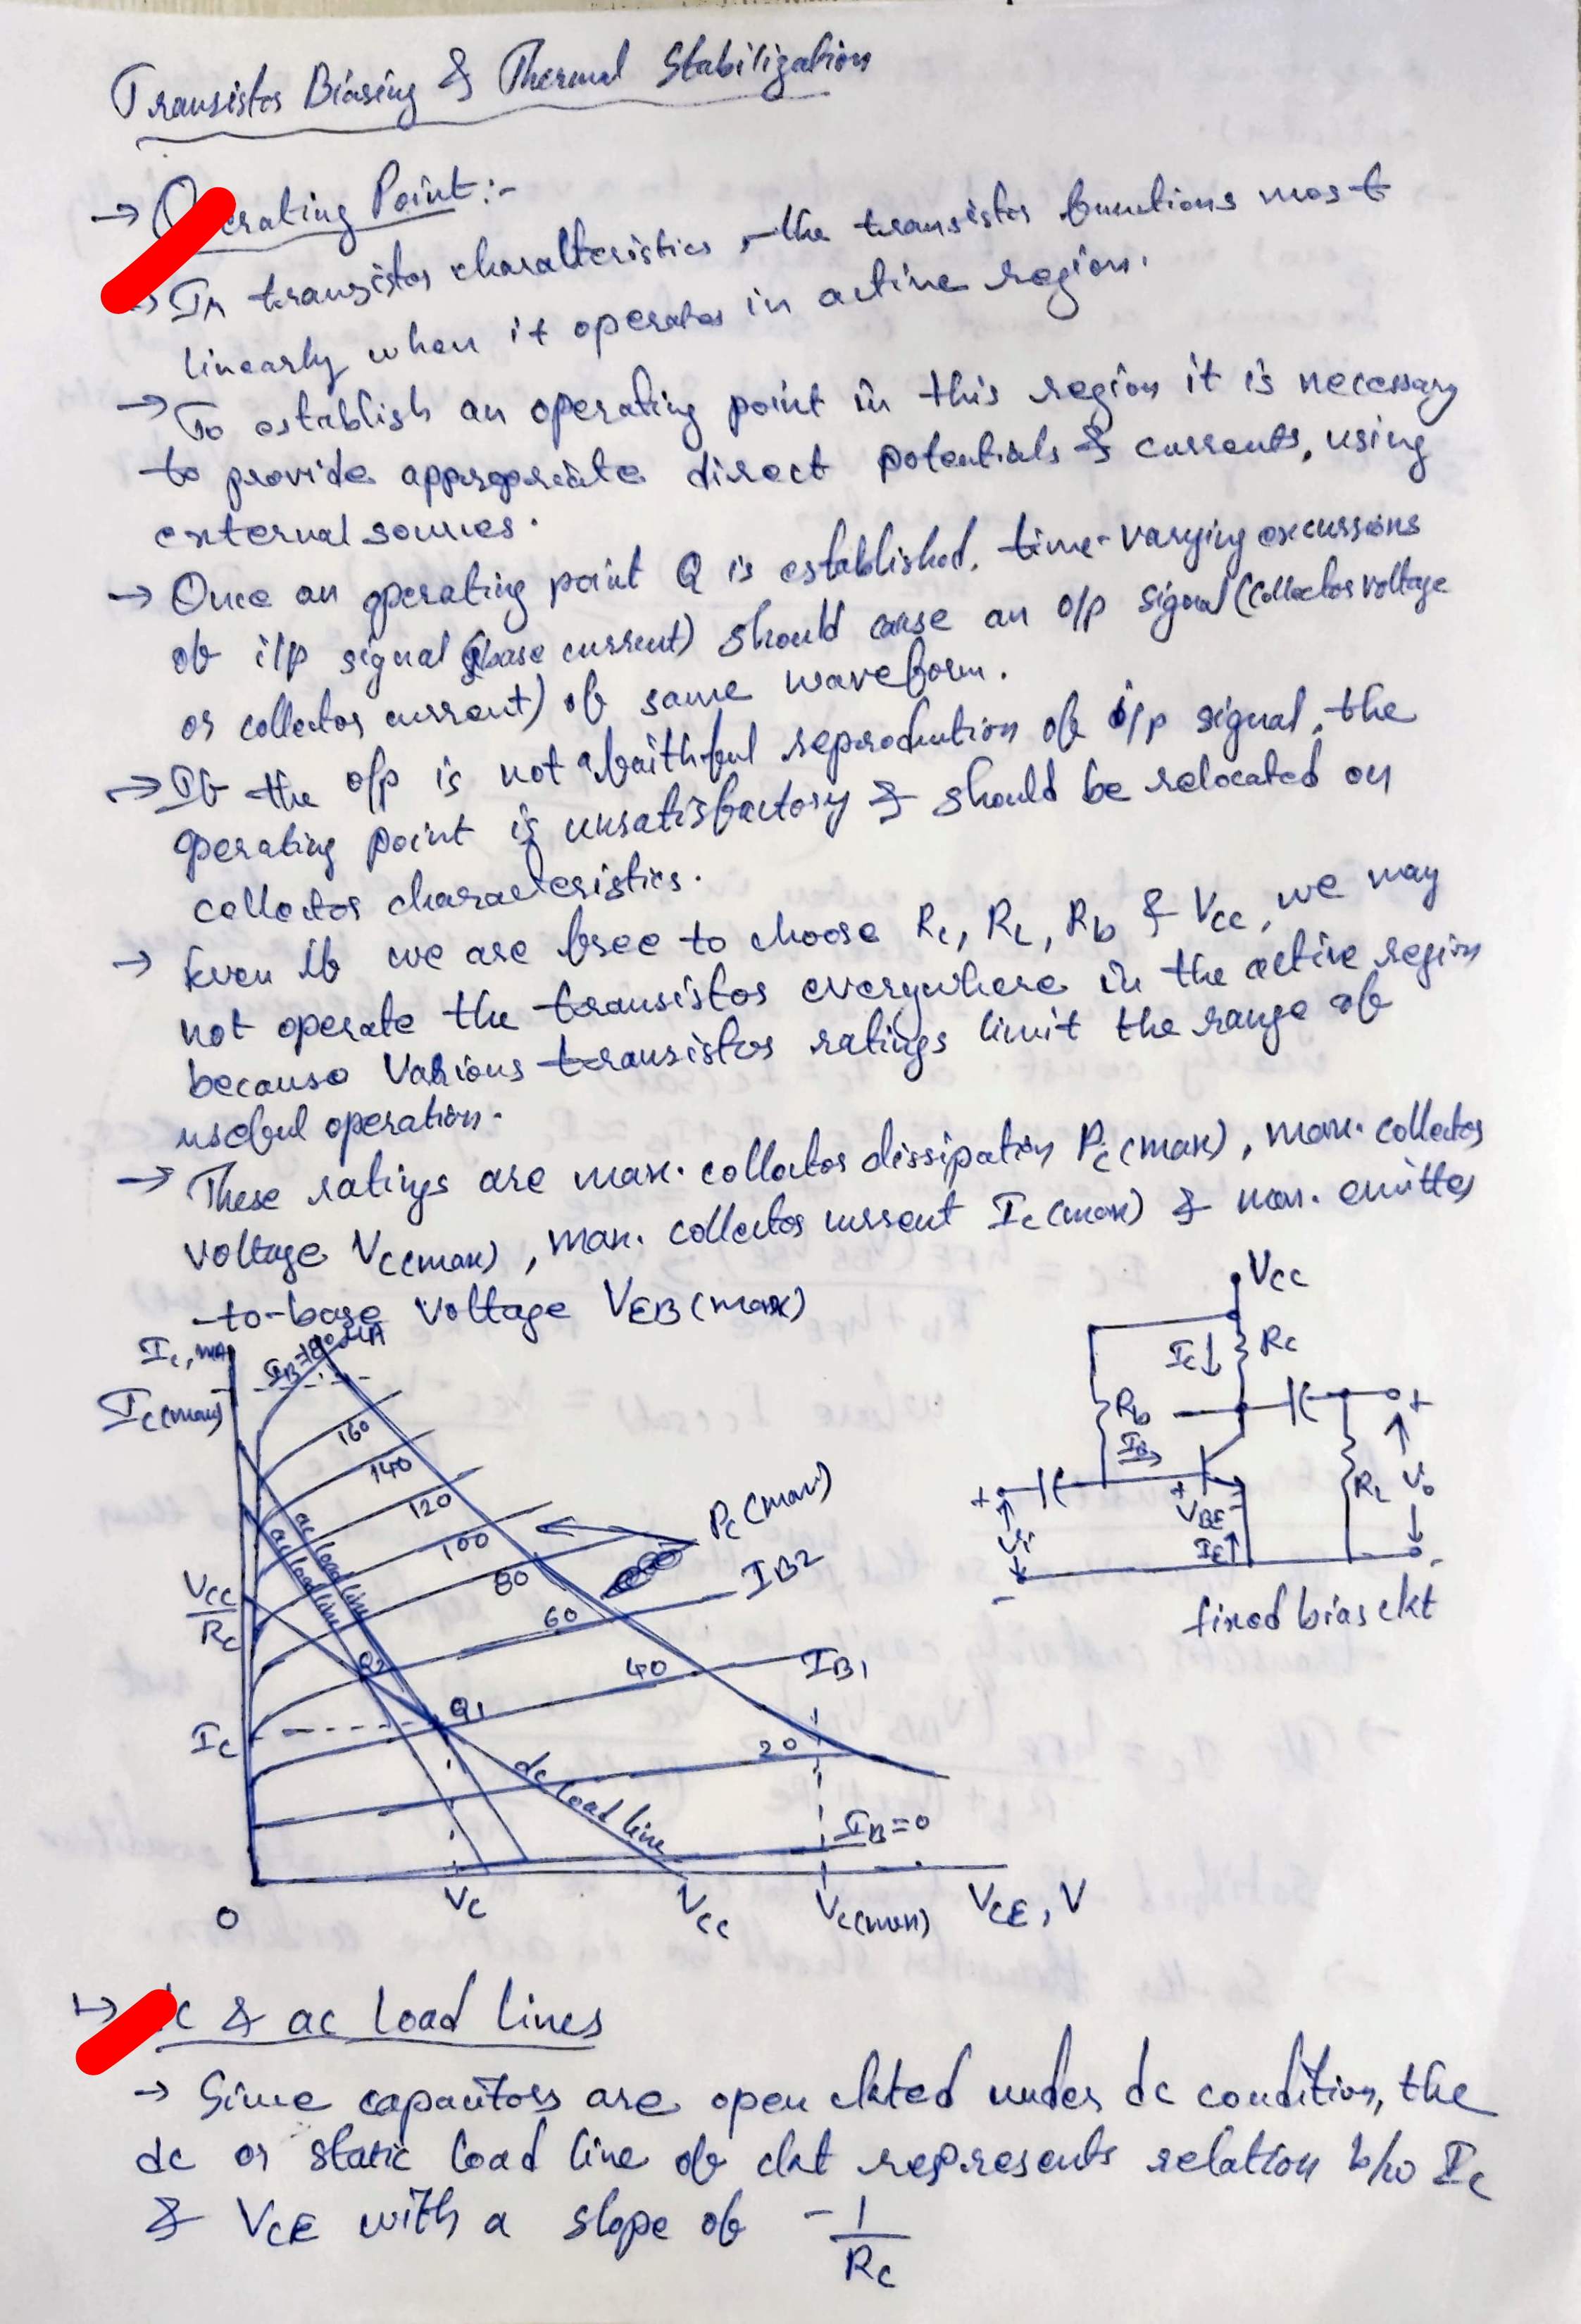 Transistor Biasing & Thermal Stabilization
→ Operating Point:-
→ In transistor characteristics, the transistor functions most
linearly when it operates in active region.
→ To establish an operating point in this region it is necessary
to provide appropriate direct potentials & currents, using
external sources.
→ Once an operating point Q is established, time-varying excursions
of i/p signal (base current) should cause an o/p signal (collector voltage
or collector current) of same waveform.
→ If the o/p is not a faithful reproduction of i/p signal, the
operating point is unsatisfactory & should be relocated on
collector characteristics.
→ Even if we are free to choose Rc, RL, Rb & Vcc, we may
not operate the transistor everywhere in the active region
because various transistor ratings limit the range of
useful operation.
→ These ratings are max. collector dissipation Pc(max), max. collector
voltage Vc(max), max. collector current Ic(max) & max. emitter
-to-base voltage VEB(max)
Ic, mA
Ic(max)
160
140
120
100
80
60
40
20
Pc(max)
IB2
IB1
IB=0
ac load line
ac load line
Vcc/Rc
Q2
Q1
Ic
dc load line
0
Vc
Vcc
Vc(max)
VCE, V
Vcc
Ic↓
Rc
Rb
IB
+
+
Vi
-
+
VBE
-
IE↑
RL
Vo
-
fixed bias ckt
→ dc & ac load lines
→ Since capacitors are open ckted under dc condition, the
dc or static load line of ckt represents relation b/w Ic
& VCE with a slope of -1/Rc